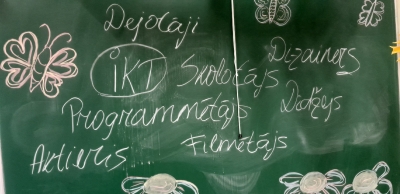 Dejotāji
Dizainers
IKT Skolotājs
Programmētājs
Filmētājs
Aktieris....